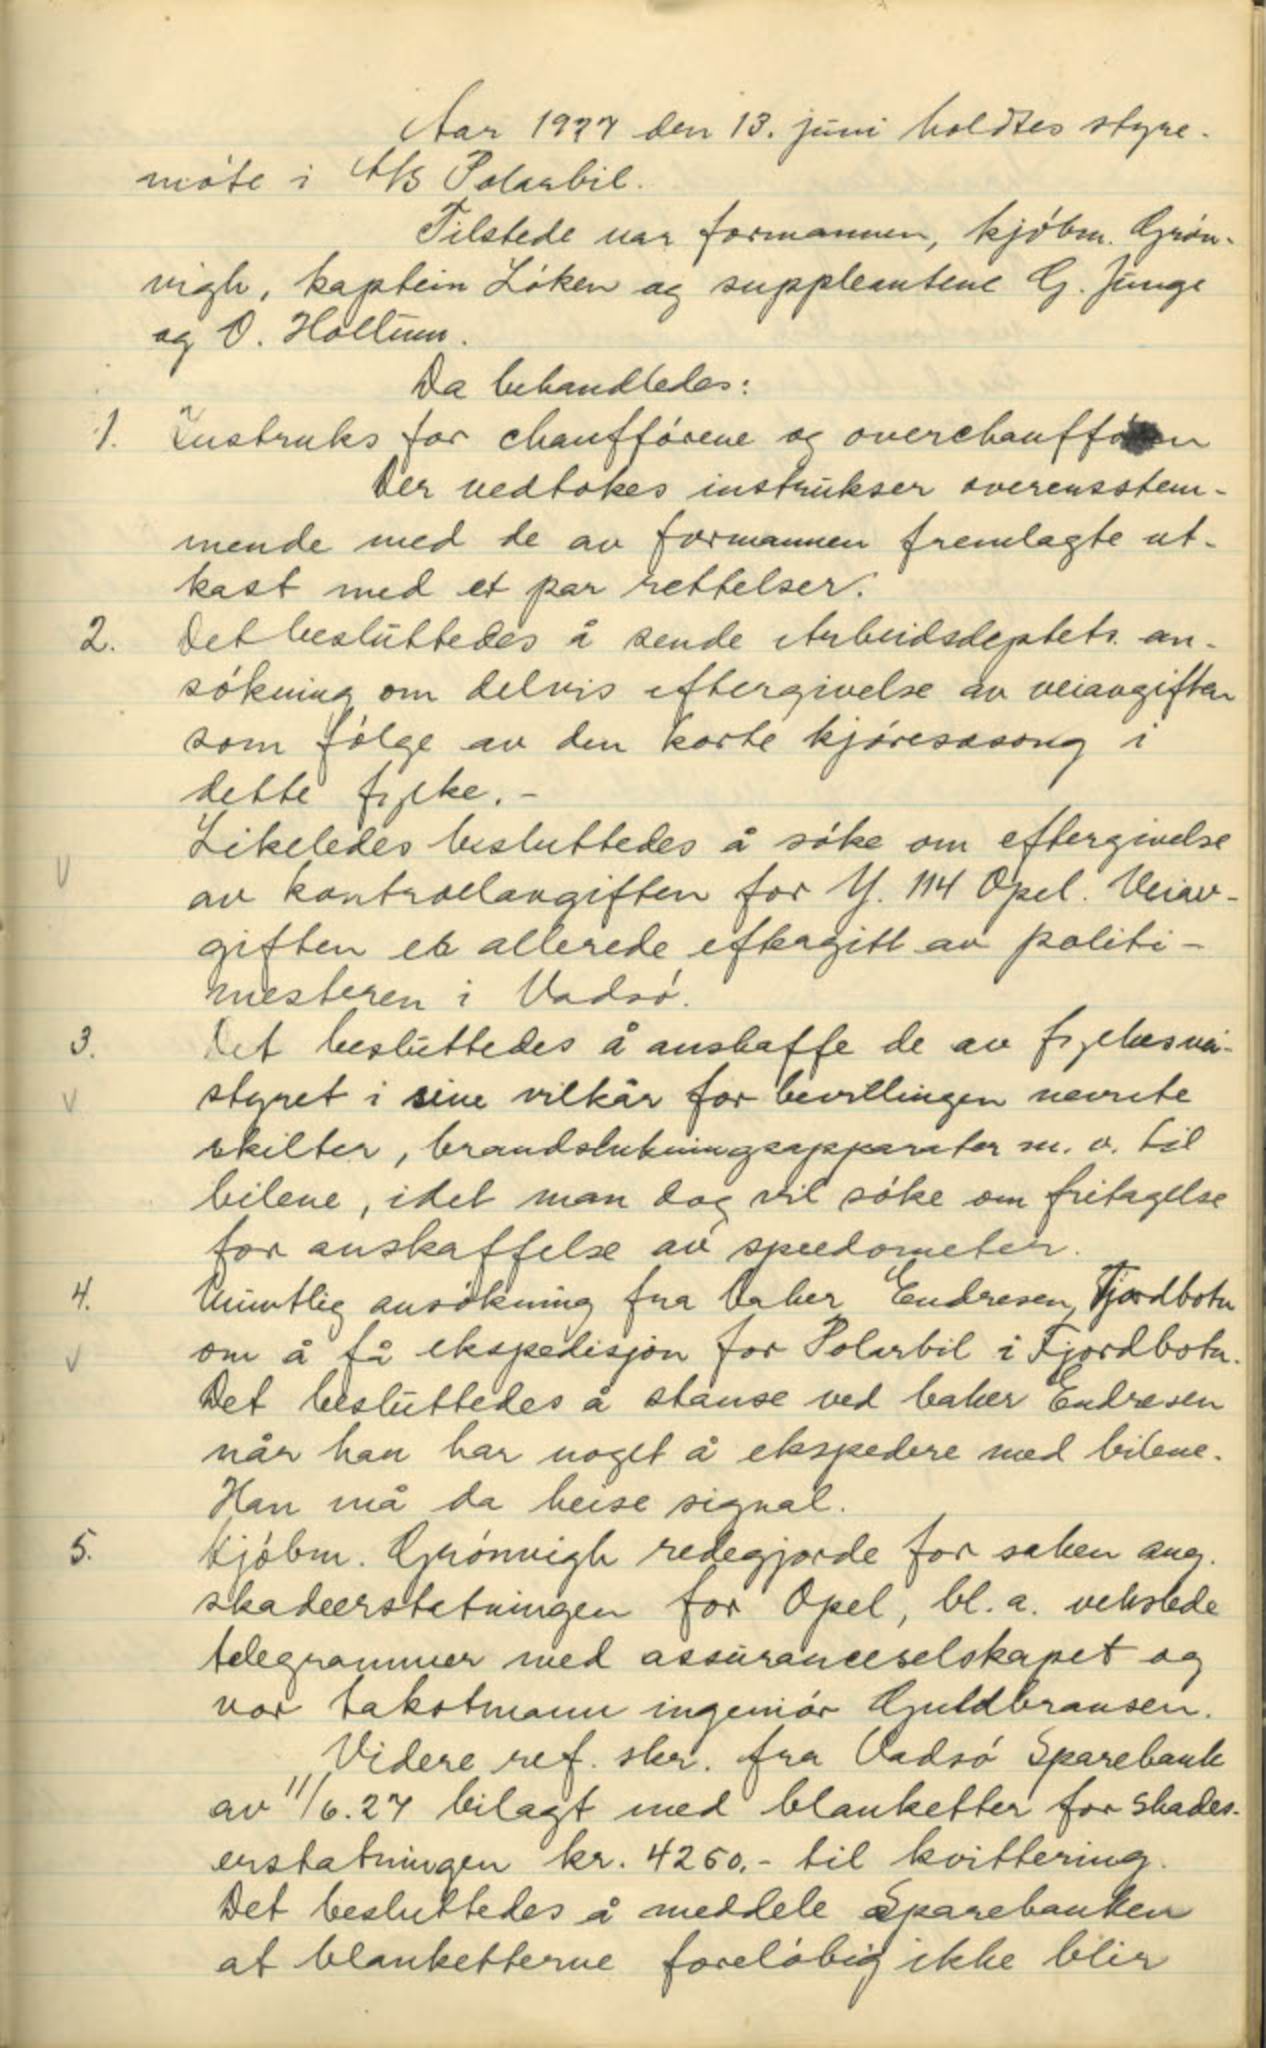 Aar 1927 den 13. juni holdtes styre-
møte i A/S Polarbil.
Tilstede var formannen, kjøbm. Grøn-
vigh, kaptein Løken og suppleantene G. Junge
og O. Holtum.
Da behandledes:
1. Instruks for chaufførene og overchaufføren
Der vedtokes instrukser overensstem-
mende med de av formannen fremlagte ut-
kast med et par rettelser.
2. Det besluttedes å sende Arbeidsdeptets. an-
søkning om delvis eftergivelse av veiavgiften
som følge av den korte kjøresæsong i
dette fylke.-
Likeledes besluttedes å søke om eftergivelse
V
av kontrollavgiften for Y. 114 Opel. Veiav-
giften er allerede eftergitt av politi-
mesteren i Vadsø.
3. Det besluttedes å anskaffe de av fylkesvei-
V styret i sine vilkår for bevillingen nevnte
skilter, brandslukningsapparater m. v. til
bilene, idet man dog vil søke om fritagelse
for anskaffelse av speedometer.
4. Muntlig ansøkning fra baker Endresen, Fjordbotn
V om å få ekspedisjon for Polarbil i Fjordbotn.
Det besluttedes å stanse ved baker Endresen
når han har noget å ekspedere med bilene.
Han må da heise signal.
5. Kjøbm. Grønvigh redegjorde for saken ang.
skadeerstatningen for Opel, bl. a. vekslede
telegrammer med assuranceselskapet og
vor takstmann ingeniør Guldbransen.
Videre ref. skr. fra Vadsø Sparebank
av 11/6.27 bilagt med blanketter for skades-
erstatningen kr. 4250.- til kvittering.
Det besluttedes å meddele Sparebanken
at blanketterne foreløbig ikke blir